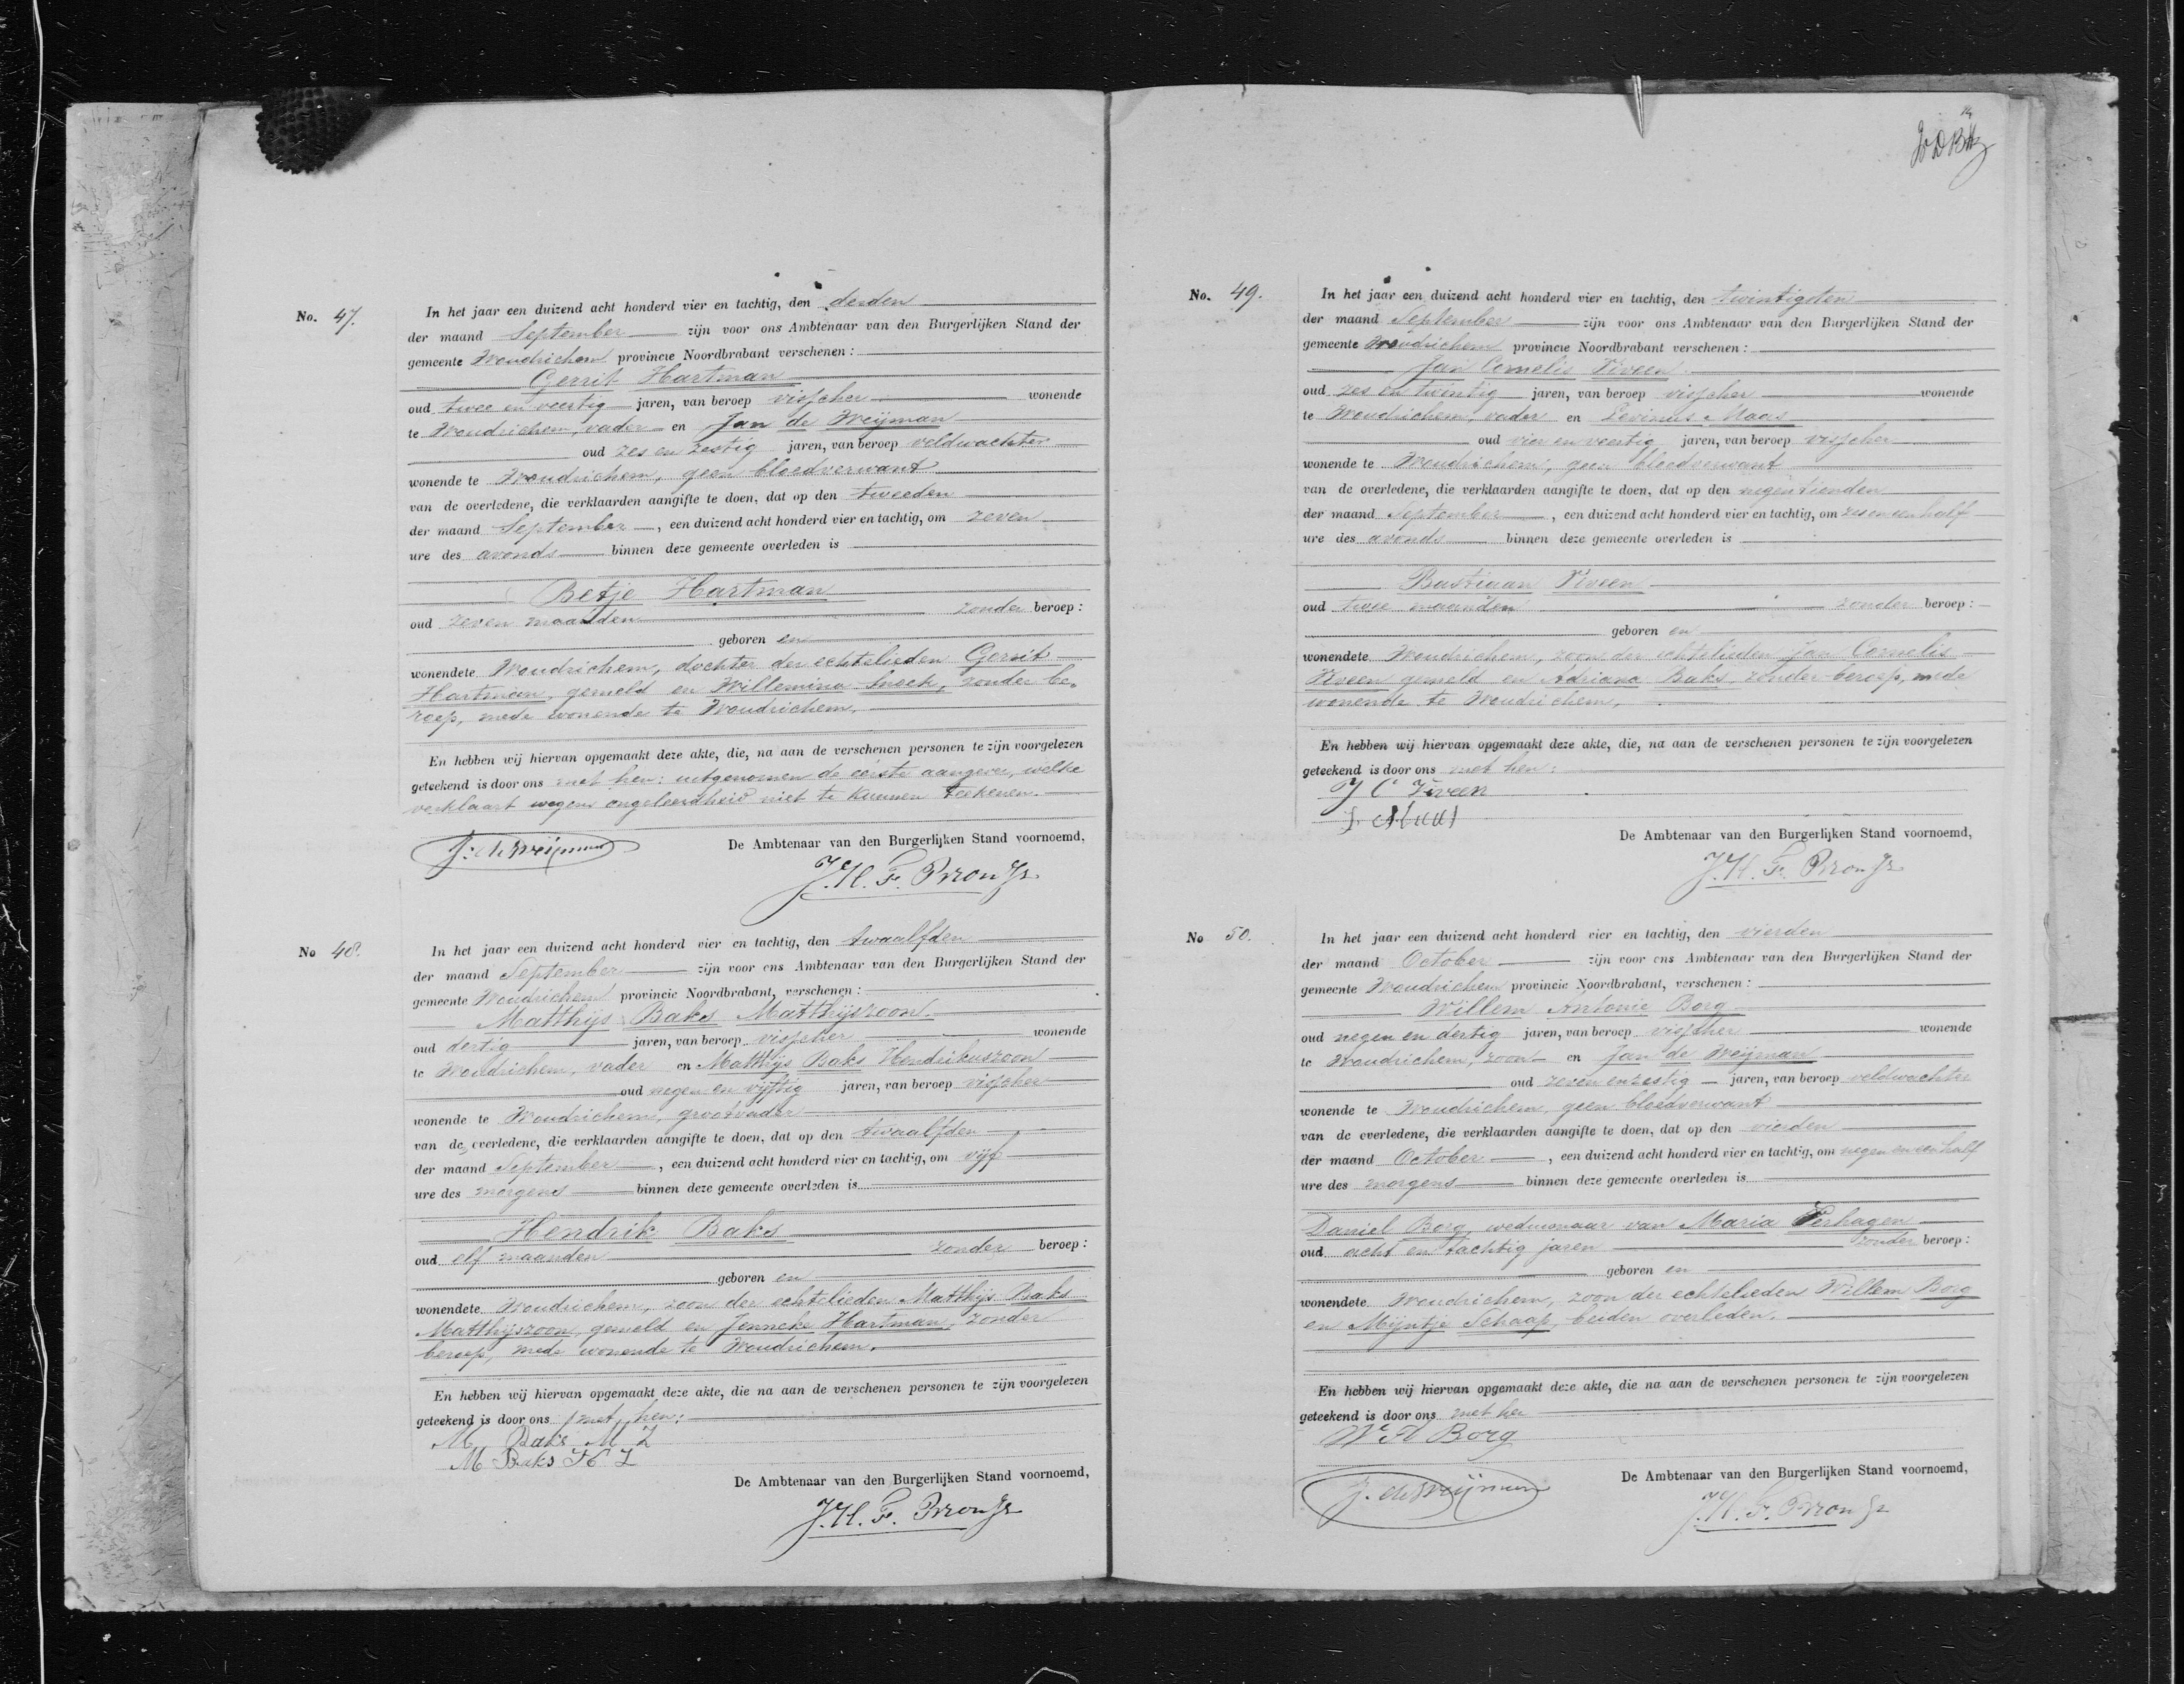 No. 47. In het jaar een duizend acht honderd vier en tachtig, den derden
der maand September zijn voor ons Ambtenaar van den Burgerlijken Stand der
gemeente Woudrichem provincie Noordbrabant verschenen:
Gerrit Hartman
oud twee en veertig jaren, van beroep visscher wonende
te Woudrichem, vader en Jan de Weijman
oud zes en zestig jaren, van beroep veldwachter
wonende te Woudrichem, geen bloedverwant
van de overledene, die verklaarden aangifte te doen, dat op den tweeden
der maand September, een duizend acht honderd vier en tachtig, om zeven
ure des avonds binnen deze gemeente overleden is
Betje Hartman
oud zeven maanden zonder beroep:
geboren en
wonende te Woudrichem, dochter der echtelieden Gerrit
Hartman, gemeld en Willemina Snoek, zonder be-
roep, mede wonende te Woudrichem.
En hebben wij hiervan opgemaakt deze akte, die, na aan de verschenen personen te zijn voorgelezen
geteekend is door ons met hen: uitgenomen de eerste aangever, welke
verklaart wegens ongeleerdheid niet te kunnen teekenen.
De Ambtenaar van den Burgerlijken Stand voornoemd,
J. de Weijman
J. H. F. Pron Jr
No 48. In het jaar een duizend acht honderd vier en tachtig, den twaalfden
der maand September zijn voor ons Ambtenaar van den Burgerlijken Stand der
gemeente Woudrichem provincie Noordbrabant, verschenen:
Matthijs Baks Matthijszoon
oud dertig jaren, van beroep visscher wonende
te Woudrichem, vader en Matthijs Baks Hendrikuszoon
oud negen en vijftig jaren, van beroep visscher
wonende te Woudrichem, grootvader
van de overledene, die verklaarden aangifte te doen, dat op den twaalfden
der maand September, een duizend acht honderd vier en tachtig, om vijf
ure des morgens binnen deze gemeente overleden is
Hendrik Baks
oud elf maanden zonder beroep:
geboren en
wonende te Woudrichem, zoon der echtelieden Matthijs Baks
Matthijszoon, gemeld en Jenneke Hartman, zonder
beroep, mede wonende te Woudrichem.
En hebben wij hiervan opgemaakt deze akte, die na aan de verschenen personen te zijn voorgelezen
geteekend is door ons met hen:
M Baks M Z
M Baks H Z
De Ambtenaar van den Burgerlijken Stand voornoemd,
J. H. F. Pron Jr
No. 49. In het jaar een duizend acht honderd vier en tachtig, den twintigsten
der maand September zijn voor ons Ambtenaar van den Burgerlijken Stand der
gemeente Woudrichem provincie Noordbrabant verschenen:
Jan Cornelis Viveen
oud zes en twintig jaren, van beroep visscher wonende
te Woudrichem, vader en Levinus Maas
oud vier en veertig jaren, van beroep visscher
wonende te Woudrichem, geen bloedverwant
van de overledene, die verklaarden aangifte te doen, dat op den negentienden
der maand September, een duizend acht honderd vier en tachtig, om zes en een half
ure des avonds binnen deze gemeente overleden is
Bastiaan Viveen
oud twee maanden zonder beroep:
geboren en
wonende te Woudrichem, zoon der echtelieden Jan Cornelis
Viveen gemeld en Adriana Baks, zonder beroep, mede
wonende te Woudrichem.
En hebben wij hiervan opgemaakt deze akte, die, na aan de verschenen personen te zijn voorgelezen
geteekend is door ons met hen:
J C Viveen
L Maas
De Ambtenaar van den Burgerlijken Stand voornoemd,
J. H. F. Pron Jr
No 50. In het jaar een duizend acht honderd vier en tachtig, den vierden
der maand October zijn voor ons Ambtenaar van den Burgerlijken Stand der
gemeente Woudrichem provincie Noordbrabant, verschenen:
Willem Antonie Borg
oud negen en dertig jaren, van beroep visscher wonende
te Woudrichem, zoon en Jan de Weijman
oud zeven en zestig jaren, van beroep veldwachter
wonende te Woudrichem, geen bloedverwant
van de overledene, die verklaarden aangifte te doen, dat op den vierden
der maand October, een duizend acht honderd vier en tachtig, om negen en een half
ure des morgens binnen deze gemeente overleden is
Daniel Borg, weduwnaar van Maria Verhagen
oud acht en tachtig jaren zonder beroep:
geboren en
wonende te Woudrichem, zoon der echtelieden Willem Borg
en Mijntje Schaap, beiden overleden.
En hebben wij hiervan opgemaakt deze akte, die na aan de verschenen personen te zijn voorgelezen
geteekend is door ons met hen
W A Borg
De Ambtenaar van den Burgerlijken Stand voornoemd,
J. de Weijman
J. H. F. Pron Jr